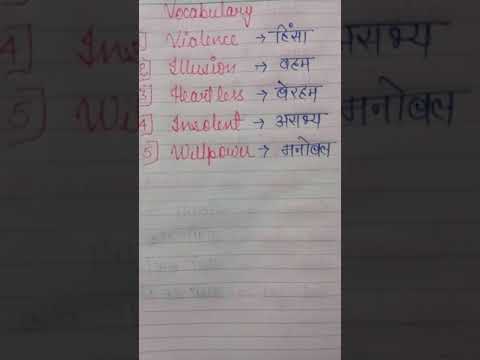 Vocabulary
1 Violence → हिंसा
2 Illusion → वहम
3 Heartless → बेरहम
4 Insolent → असभ्य
5 Willpower → मनोबल